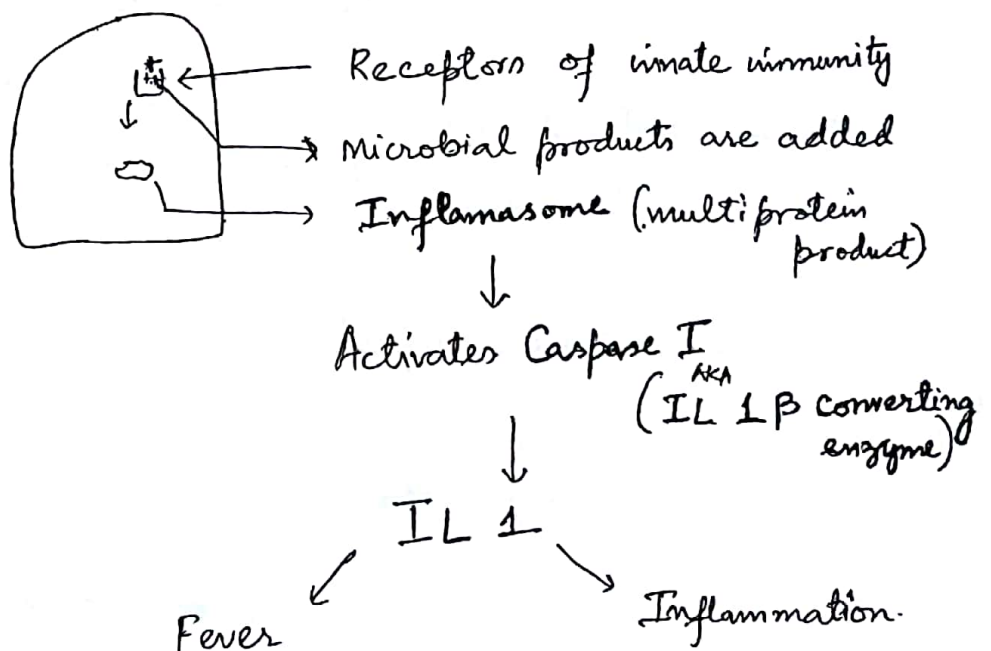 Receptors of innate immunity
Microbial products are added
Inflamasome (multiprotein
product)
Activates Caspase I
AKA
(IL 1 β converting
enzyme)
IL 1
Fever
Inflammation.